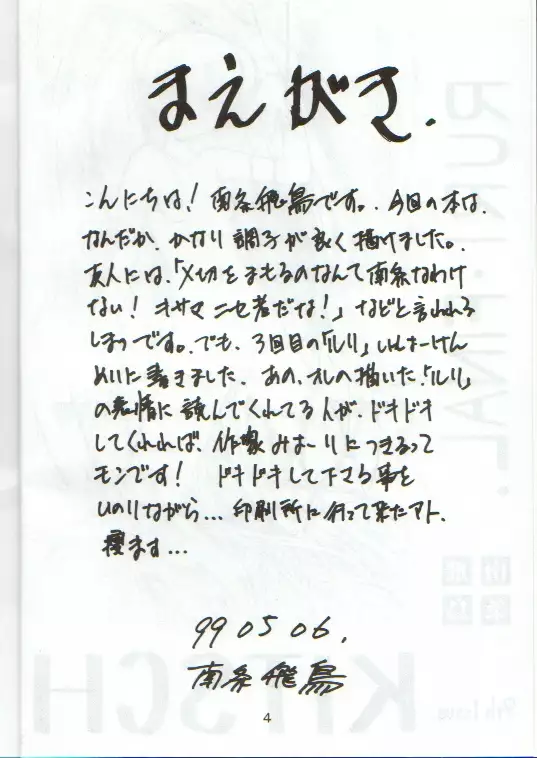 まえがき.
こんにちは! 南条飛鳥です。今回の本は、
なんだか、かなり調子が良く描けました。
友人には、「〆切をまもるのなんて南条なわけ
ない! キサマニセ者だな!」などと言われる
しまつです。でも、3回目の「ルリ」いっしょーけん
めいに書きました。あの、オレの描いた「ルリ」
の表情に読んでくれてる人が、ドキドキ
してくれれば、作家みょーりにつきるって
モンです! ドキドキして下さる事を
いのりながら... 印刷所に行って来たアト、
寝ます...
99 05 06.
南条飛鳥
4
RURI・FINAL.
KITSCH
9th Issue